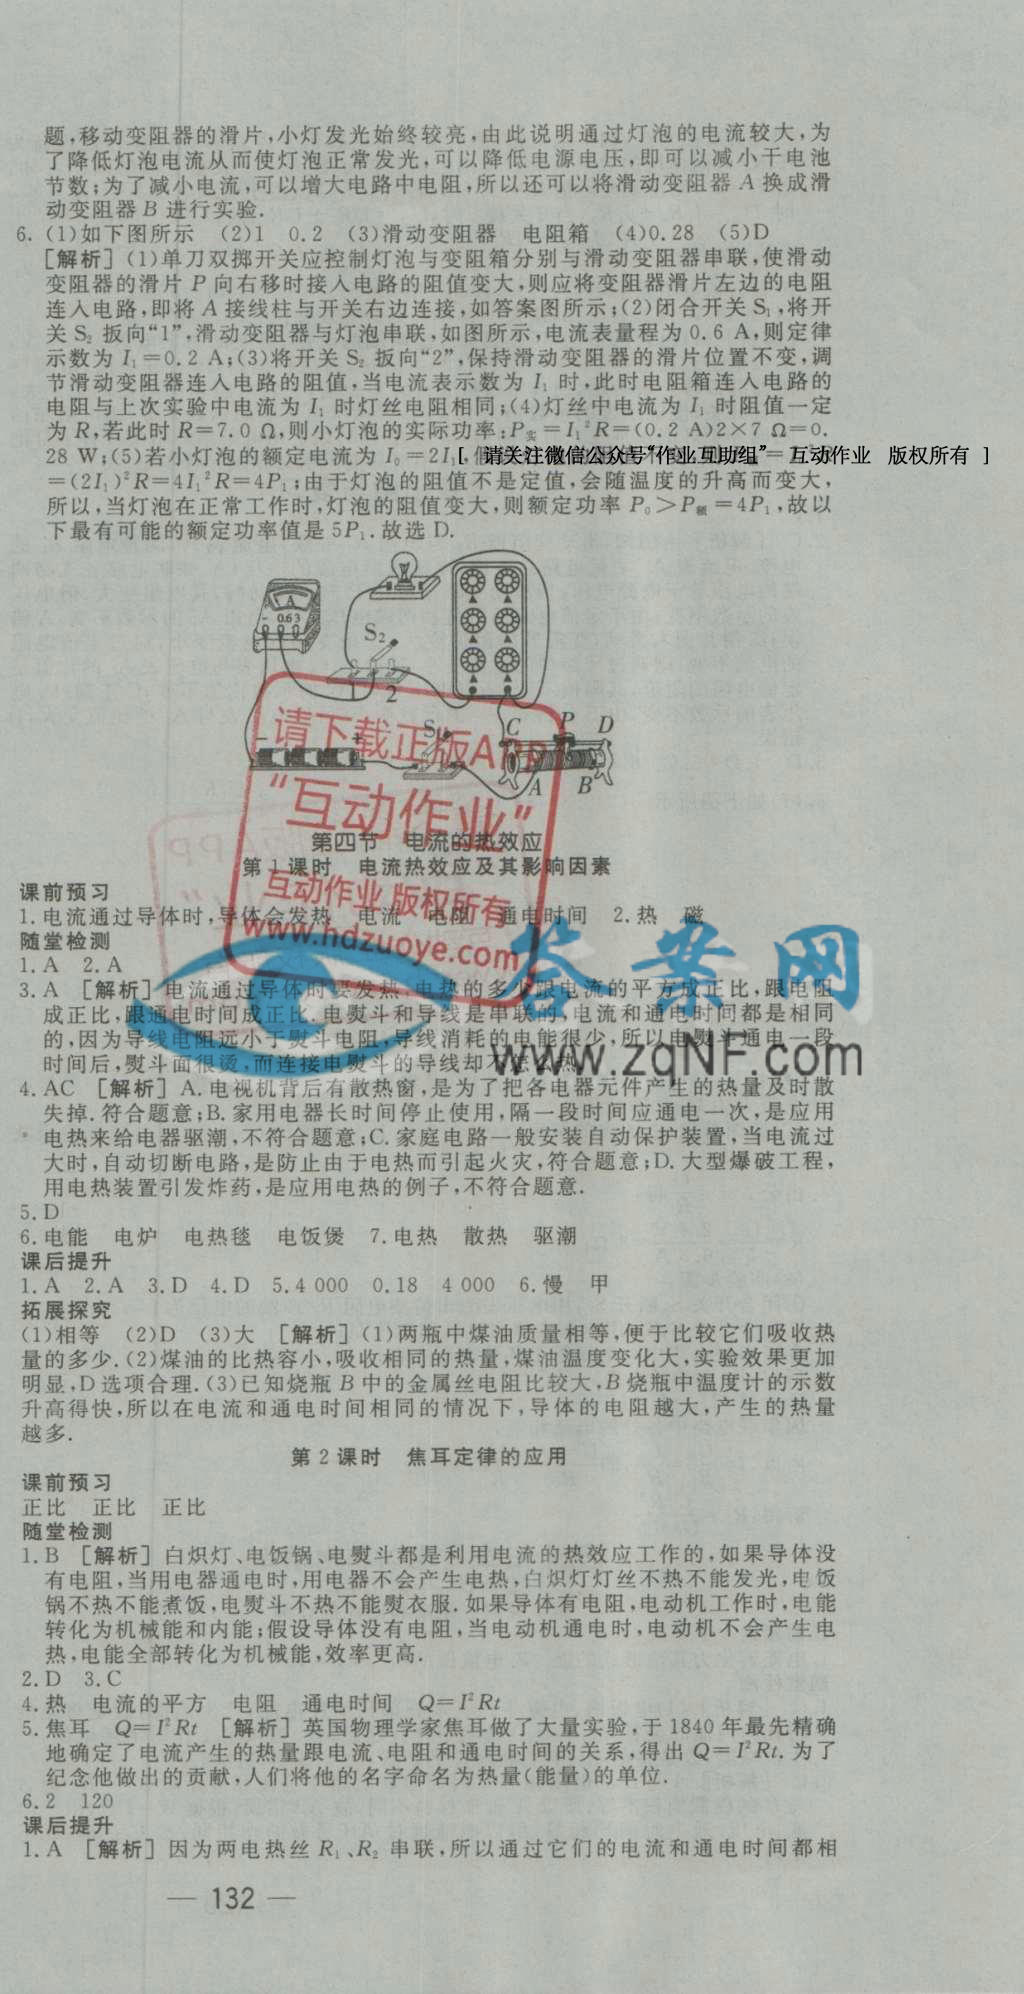 题,移动变阻器的滑片,小灯发光始终较亮,由此说明通过灯泡的电流较大,为
了降低灯泡电流从而使灯泡正常发光,可以降低电源电压,即可以减小干电池
节数;为了减小电流,可以增大电路中电阻,所以还可以将滑动变阻器 A 换成滑
动变阻器 B 进行实验.
6. (1)如下图所示 (2)1 0.2 (3)滑动变阻器 电阻箱 (4)0.28 (5)D
[解析] (1)单刀双掷开关应控制灯泡与变阻箱分别与滑动变阻器串联,使滑动
变阻器的滑片 P 向右移时接入电路的阻值变大,则应将变阻器滑片左边的电阻
连入电路,即将 A 接线柱与开关右边连接,如答案图所示;(2)闭合开关 S₁,将开
关 S₂ 扳向“1”,滑动变阻器与灯泡串联,如图所示,电流表量程为 0.6 A,则定律
示数为 I₁=0.2 A;(3)将开关 S₂ 扳向“2”,保持滑动变阻器的滑片位置不变,调
节滑动变阻器连入电路的阻值,当电流表示数为 I₁ 时,此时电阻箱连入电路的
电阻与上次实验中电流为 I₁ 时灯丝电阻相同;(4)灯丝中电流为 I₁ 时阻值一定
为 R,若此时 R=7.0 Ω,则小灯泡的实际功率:P实=I₁²R=(0.2 A)2×7 Ω=0.
28 W;(5)若小灯泡的额定电流为 I₀=2I₁,
[ 请关注微信公众号“作业互助组” 互动作业 版权所有 ]
=(2I₁)²R=4I₁²R=4P₁;由于灯泡的阻值不是定值,会随温度的升高而变大,
所以,当灯泡在正常工作时,灯泡的阻值变大,则额定功率 P₀>P额=4P₁,故以
下最有可能的额定功率值是 5P₁.故选 D.
A
- 0.6 3
S₂
1 2
C P D
- + S₁
A B
请下载正版APP
“互动作业”
第四节 电流的热效应
第 1 课时 电流热效应及其影响因素
互动作业 版权所有
www.hdzuoye.com
课前预习
1. 电流通过导体时,导体会发热 电流 电阻 通电时间 2. 热 磁
随堂检测
答案网
1. A 2. A
3. A [解析] 电流通过导体时要发热,电热的多少跟电流的平方成正比,跟电阻
成正比,跟通电时间成正比.电熨斗和导线是串联的,电流和通电时间都是相同
的,因为导线电阻远小于熨斗电阻,导线消耗的电能很少,所以电熨斗通电一段
时间后,熨斗面很烫,而连接电熨斗的导线却不怎么热.
www.zqNF.com
4. AC [解析] A. 电视机背后有散热窗,是为了把各电器元件产生的热量及时散
失掉.符合题意;B. 家用电器长时间停止使用,隔一段时间应通电一次,是应用
电热来给电器驱潮,不符合题意;C. 家庭电路一般安装自动保护装置,当电流过
大时,自动切断电路,是防止由于电热而引起火灾,符合题意;D. 大型爆破工程,
用电热装置引发炸药,是应用电热的例子,不符合题意.
5. D
6. 电能 电炉 电热毯 电饭煲 7. 电热 散热 驱潮
课后提升
1. A 2. A 3. D 4. D 5. 4 000 0.18 4 000 6. 慢 甲
拓展探究
(1)相等 (2)D (3)大 [解析] (1)两瓶中煤油质量相等,便于比较它们吸收热
量的多少.(2)煤油的比热容小,吸收相同的热量,煤油温度变化大,实验效果更加
明显,D 选项合理.(3)已知烧瓶 B 中的金属丝电阻比较大,B 烧瓶中温度计的示数
升高得快,所以在电流和通电时间相同的情况下,导体的电阻越大,产生的热量
越多.
第 2 课时 焦耳定律的应用
课前预习
正比 正比 正比
随堂检测
1. B [解析] 白炽灯、电饭锅、电熨斗都是利用电流的热效应工作的,如果导体没
有电阻,当用电器通电时,用电器不会产生电热,白炽灯灯丝不热不能发光,电饭
锅不热不能煮饭,电熨斗不热不能熨衣服.如果导体有电阻,电动机工作时,电能
转化为机械能和内能;假设导体没有电阻,当电动机通电时,电动机不会产生电
热,电能全部转化为机械能,效率更高.
2. D 3. C
4. 热 电流的平方 电阻 通电时间 Q=I²Rt
5. 焦耳 Q=I²Rt [解析] 英国物理学家焦耳做了大量实验,于 1840 年最先精确
地确定了电流产生的热量跟电流、电阻和通电时间的关系,得出 Q=I²Rt.为了
纪念他做出的贡献,人们将他的名字命名为热量(能量)的单位.
6. 2 120
课后提升
1. A [解析] 因为两电热丝 R₁、R₂ 串联,所以通过它们的电流和通电时间都相
— 132 —